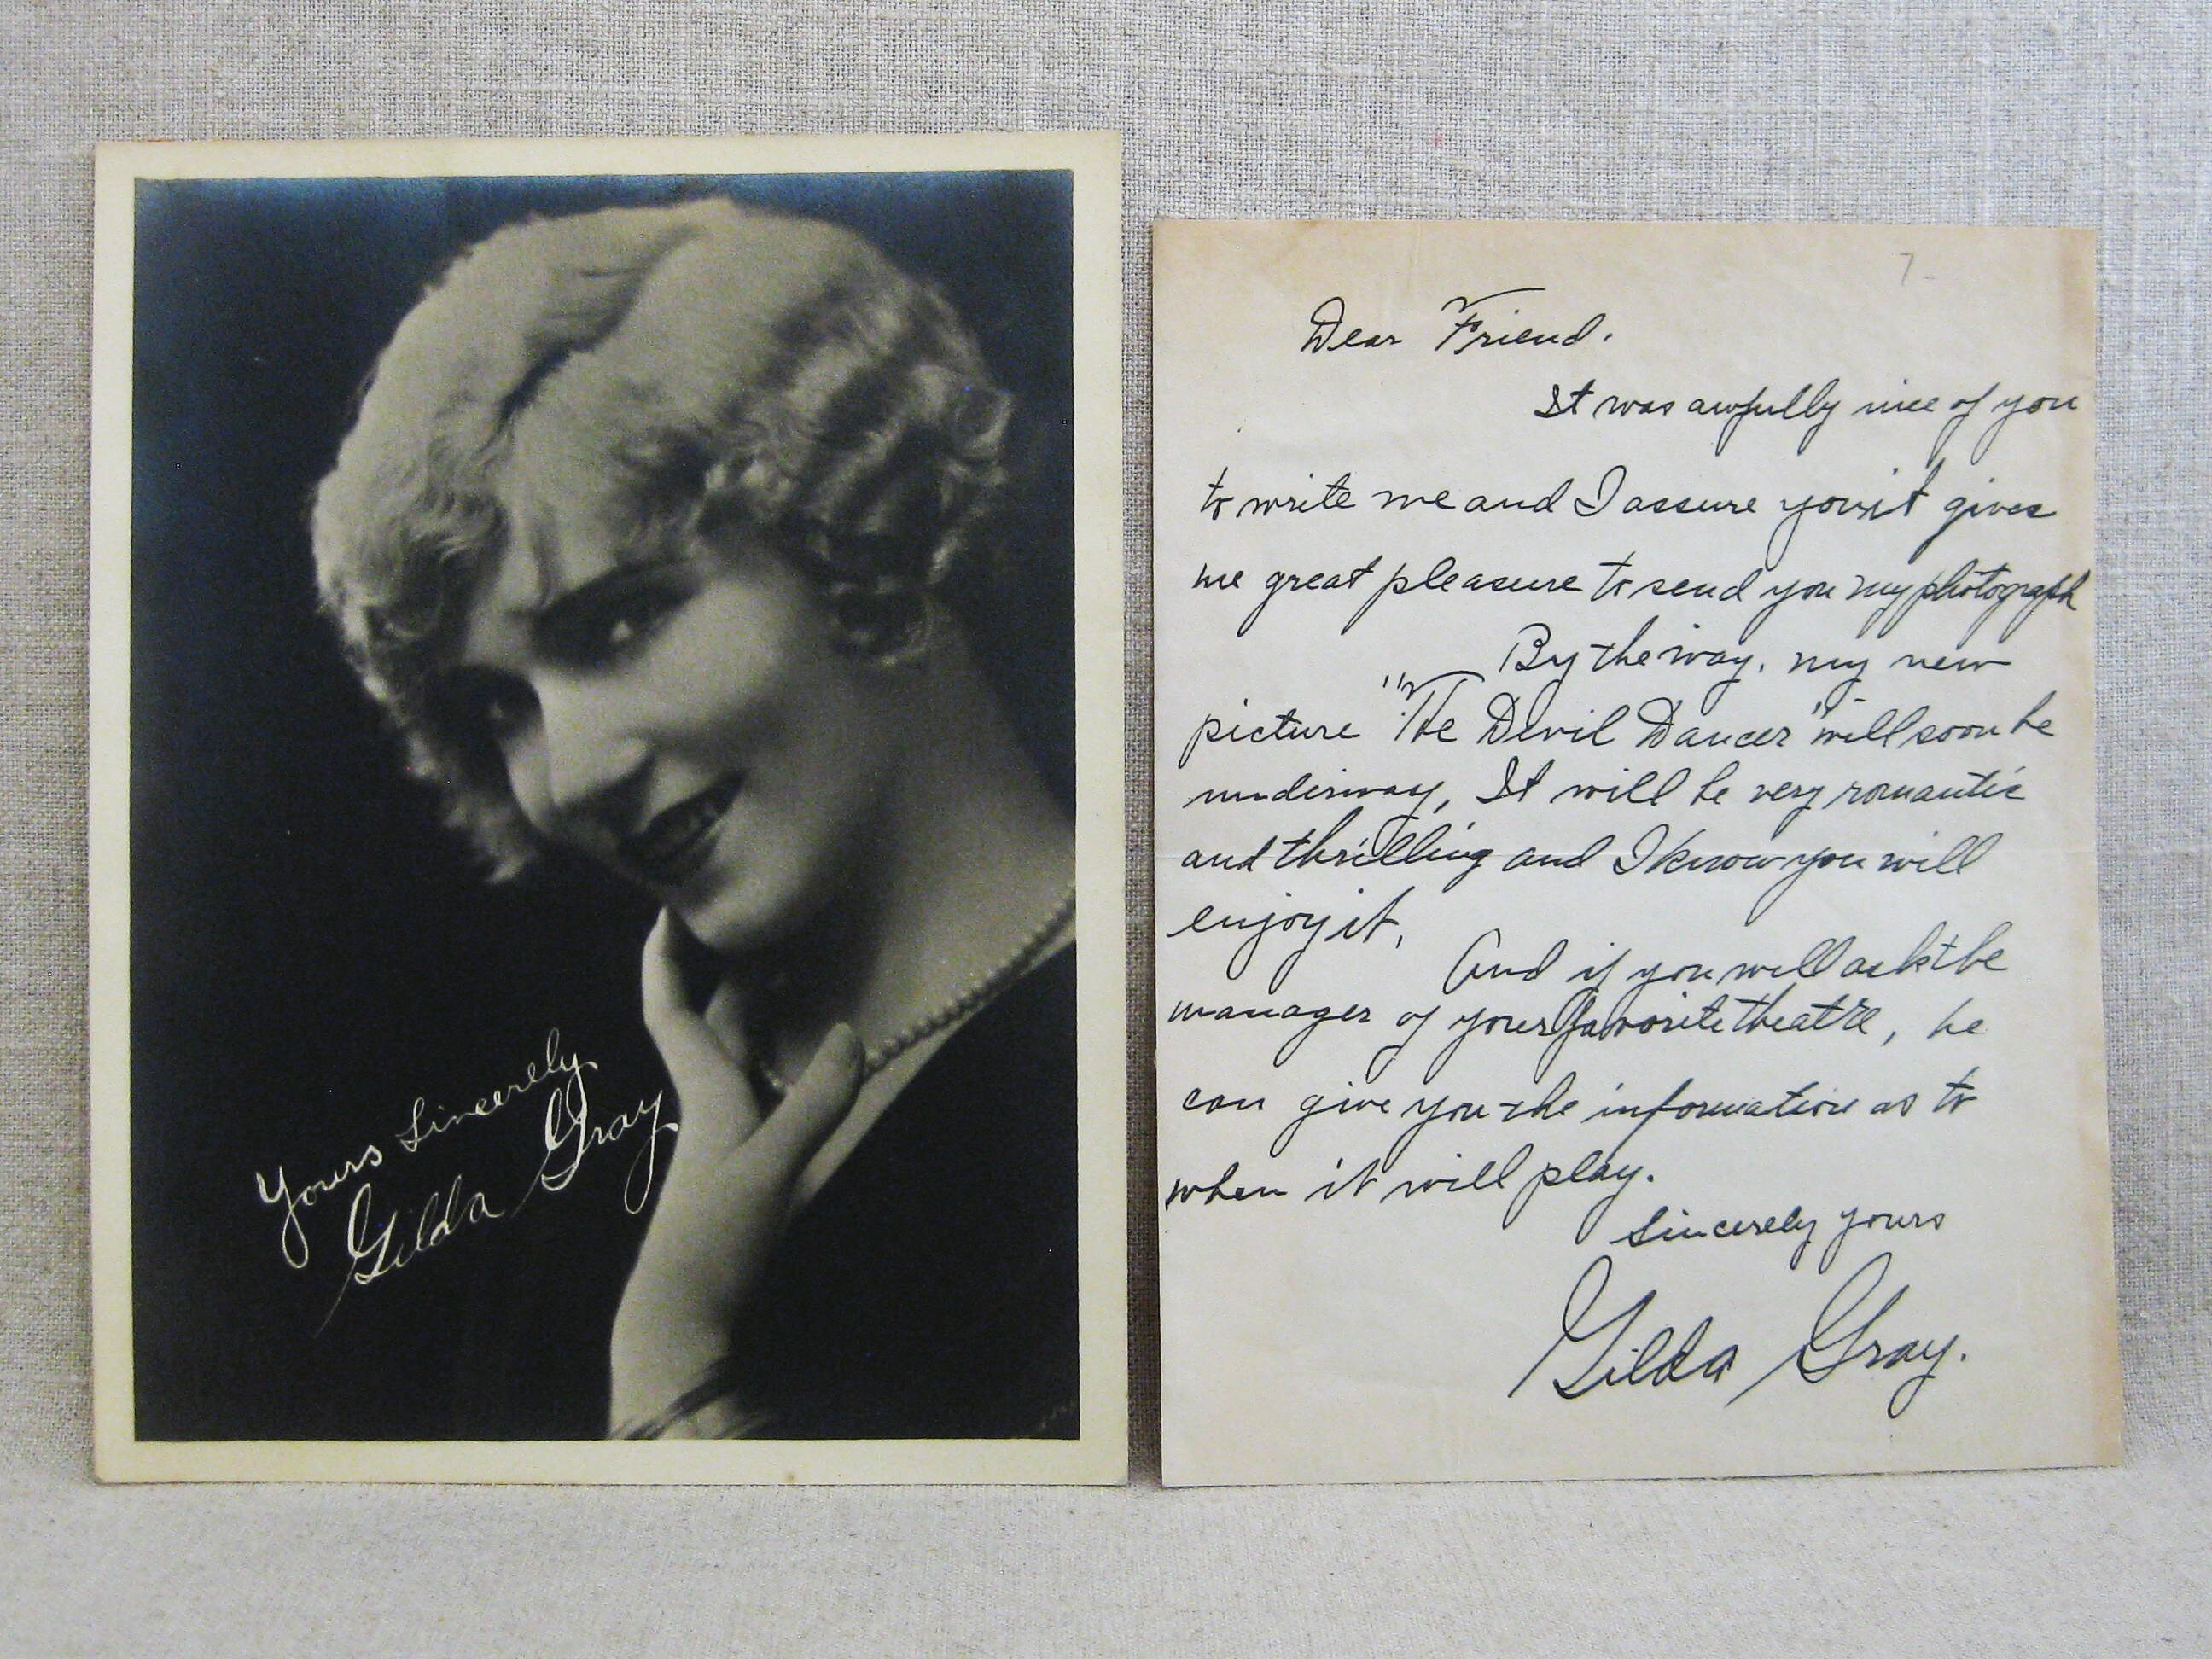 Yours Sincerely
Gilda Gray
7-
Dear Friend.
It was awfully nice of you
to write me and I assure you it gives
me great pleasure to send you my photograph
By the way, my new
picture "The Devil Dancer" will soon be
underway, It will be very romantic
and thrilling and I know you will
enjoy it,
And if you will ask the
manager of your favorite theatre, he
can give you the information as to
when it will play.
Sincerely yours
Gilda Gray.